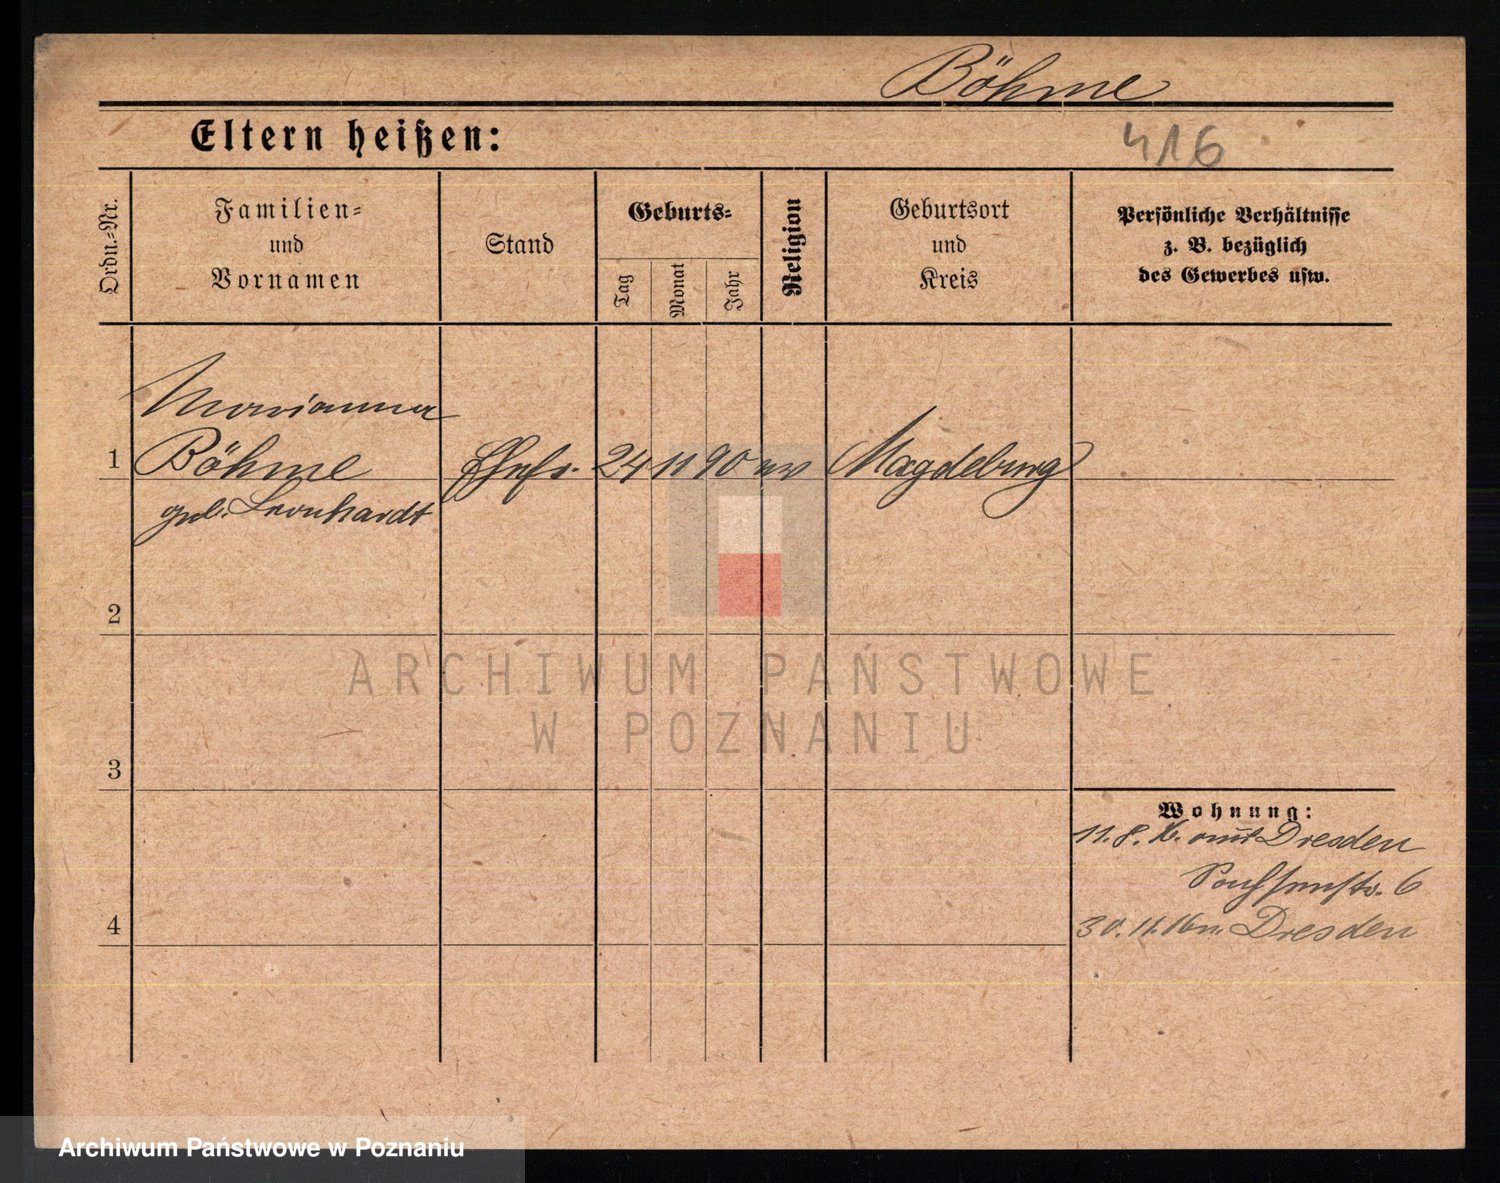 Böhme
Eltern heißen:
416
Ordn.-Nr.
Familien-
und
Vornamen
Stand
Geburts-
Tag
Monat
Jahr
Religion
Geburtsort
und
Kreis
Persönliche Verhältnisse
z. B. bezüglich
des Gewerbes usw.
Marianna
1 Böhme Ehefr. 24 11 90 ev Magdeburg
geb. Leonhardt
2
ARCHIWUM PAŃSTWOWE
W POZNANIU
3
Wohnung:
11. 8. 16. aus Dresden
6
4
30. 11. 16 n. Dresden
Archiwum Państwowe w Poznaniu